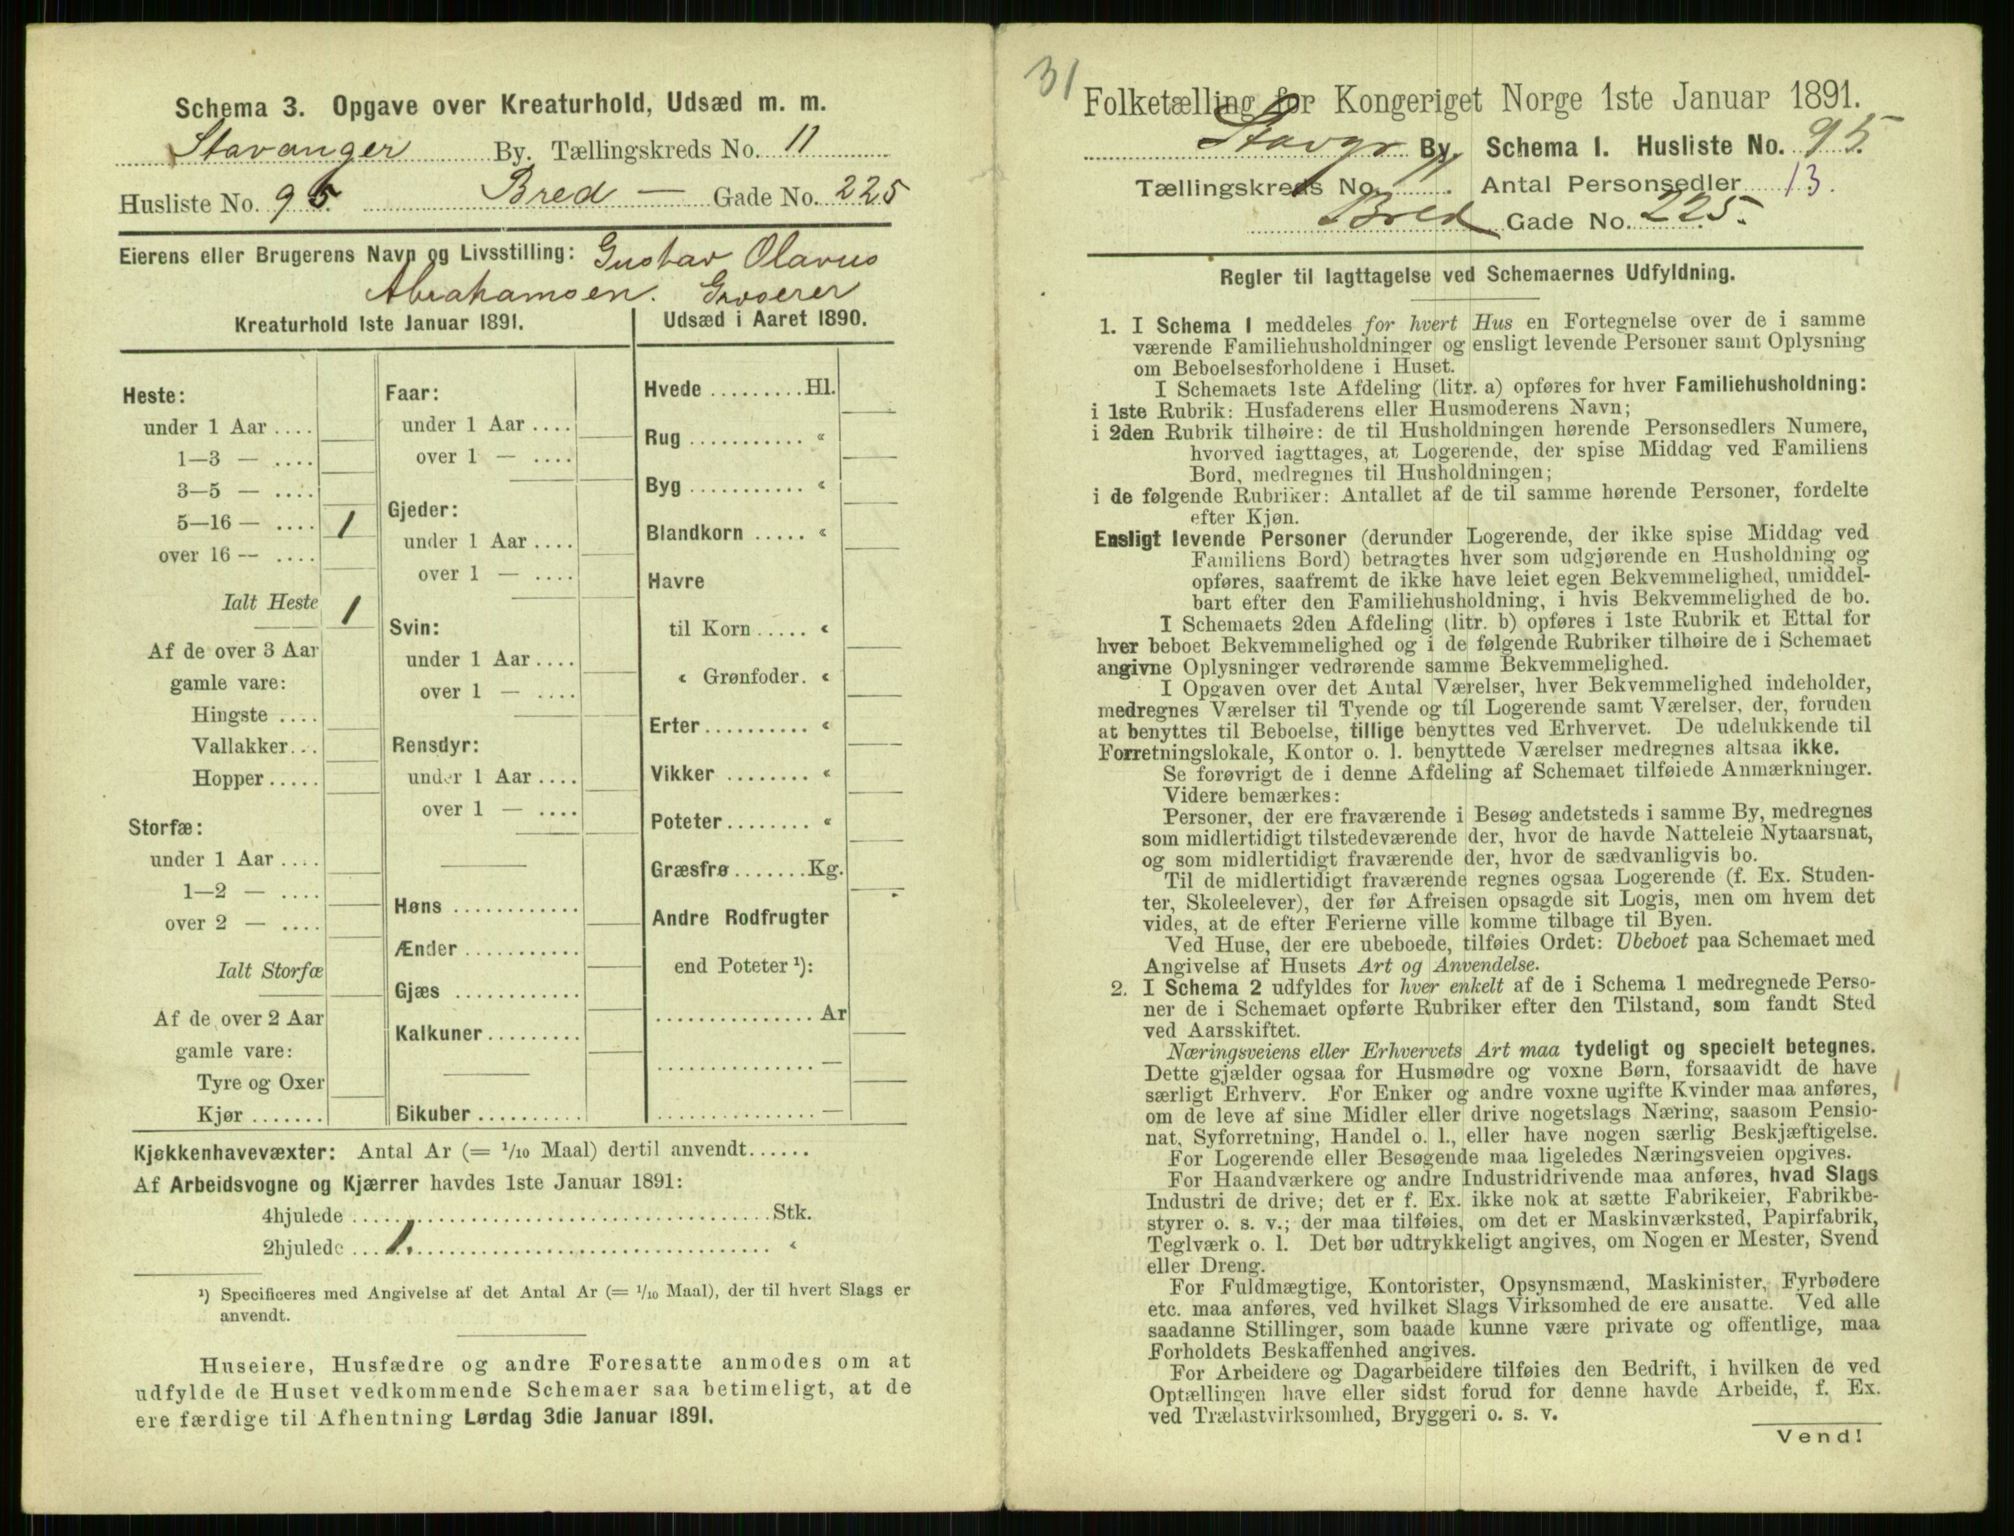 Schema 3. Opgave over Kreaturhold, Udsæd m. m.
Stavanger By. Tællingskreds No. 11
Husliste No. 95. Bred — Gade No. 225
Eierens eller Brugerens Navn og Livsstilling: Gustav Olavus
Abrahamsen. Groserer
Kreaturhold 1ste Januar 1891.
Heste:
under 1 Aar ....
1—3 — ....
3—5 — ....
5—16 — .... 1
over 16 — ....
Ialt Heste 1
Af de over 3 Aar
gamle vare:
Hingste ....
Vallakker...
Hopper .....
Storfæ:
under 1 Aar ....
1—2 — ....
over 2 — ....
Ialt Storfæ
Af de over 2 Aar
gamle vare:
Tyre og Oxer
Kjør .......
Faar:
under 1 Aar ....
over 1 — ....
Gjeder:
under 1 Aar ....
over 1 — ....
Svin:
under 1 Aar ....
over 1 — ....
Rensdyr:
under 1 Aar ....
over 1 — ....
Høns ............
Ænder ...........
Gjæs ............
Kalkuner .........
Bikuber ..........
Udsæd i Aaret 1890.
Hvede .........Hl.
Rug ........... “
Byg ........... “
Blandkorn ..... “
Havre
til Korn ..... “
“ Grønfoder. “
Erter.......... “
Vikker ........ “
Poteter ........ “
Græsfrø .......Kg.
Andre Rodfrugter
end Poteter ¹):
............... Ar
............... —
............... —
Kjøkkenhavevæxter: Antal Ar (= 1/10 Maal) dertil anvendt......
Af Arbeidsvogne og Kjærrer havdes 1ste Januar 1891:
4hjulede ........................................Stk.
2hjulede ... 1. .................................... “
¹) Specificeres med Angivelse af det Antal Ar (= 1/10 Maal), der til hvert Slags er
anvendt.
Huseiere, Husfædre og andre Foresatte anmodes om at
udfylde de Huset vedkommende Schemaer saa betimeligt, at de
ere færdige til Afhentning Lørdag 3die Januar 1891.
31
Folketælling for Kongeriget Norge 1ste Januar 1891.
Stavgr By. Schema I. Husliste No. 95.
Tællingskreds No. 11. Antal Personsedler 13.
Bred Gade No. 225.
Regler til Iagttagelse ved Schemaernes Udfyldning.
1. I Schema 1 meddeles for hvert Hus en Fortegnelse over de i samme
værende Familiehusholdninger og ensligt levende Personer samt Oplysning
om Beboelsesforholdene i Huset.
I Schemaets 1ste Afdeling (litr. a) opføres for hver Familiehusholdning:
i 1ste Rubrik: Husfaderens eller Husmoderens Navn;
i 2den Rubrik tilhøire: de til Husholdningen hørende Personsedlers Numere,
hvorved iagttages, at Logerende, der spise Middag ved Familiens
Bord, medregnes til Husholdningen;
i de følgende Rubriker: Antallet af de til samme hørende Personer, fordelte
efter Kjøn.
Ensligt levende Personer (derunder Logerende, der ikke spise Middag ved
Familiens Bord) betragtes hver som udgjørende en Husholdning og
opføres, saafremt de ikke have leiet egen Bekvemmelighed, umiddel-
bart efter den Familiehusholdning, i hvis Bekvemmelighed de bo.
I Schemaets 2den Afdeling (litr. b) opføres i 1ste Rubrik et Ettal for
hver beboet Bekvemmelighed og i de følgende Rubriker tilhøire de i Schemaet
angivne Oplysninger vedrørende samme Bekvemmelighed.
I Opgaven over det Antal Værelser, hver Bekvemmelighed indeholder,
medregnes Værelser til Tyende og til Logerende samt Værelser, der, foruden
at benyttes til Beboelse, tillige benyttes ved Erhvervet. De udelukkende til
Forretningslokale, Kontor o. l. benyttede Værelser medregnes altsaa ikke.
Se forøvrigt de i denne Afdeling af Schemaet tilføiede Anmærkninger.
Videre bemærkes:
Personer, der ere fraværende i Besøg andetsteds i samme By, medregnes
som midlertidigt tilstedeværende der, hvor de havde Natteleie Nytaarsnat,
og som midlertidigt fraværende der, hvor de sædvanligvis bo.
Til de midlertidigt fraværende regnes ogsaa Logerende (f. Ex. Studen-
ter, Skoleelever), der før Afreisen opsagde sit Logis, men om hvem det
vides, at de efter Ferierne ville komme tilbage til Byen.
Ved Huse, der ere ubeboede, tilføies Ordet: Ubeboet paa Schemaet med
Angivelse af Husets Art og Anvendelse.
2. I Schema 2 udfyldes for hver enkelt af de i Schema 1 medregnede Perso-
ner de i Schemaet opførte Rubriker efter den Tilstand, som fandt Sted
ved Aarsskiftet.
Næringsveiens eller Erhvervets Art maa tydeligt og specielt betegnes.
Dette gjælder ogsaa for Husmødre og voxne Børn, forsaavidt de have
særligt Erhverv. For Enker og andre voxne ugifte Kvinder maa anføres,
om de leve af sine Midler eller drive nogetslags Næring, saasom Pensio-
nat, Syforretning, Handel o. l., eller have nogen særlig Beskjæftigelse.
For Logerende eller Besøgende maa ligeledes Næringsveien opgives.
For Haandværkere og andre Industridrivende maa anføres, hvad Slags
Industri de drive; det er f. Ex. ikke nok at sætte Fabrikeier, Fabrikbe-
styrer o. s. v.; der maa tilføies, om det er Maskinværksted, Papirfabrik,
Teglværk o. l. Det bør udtrykkeligt angives, om Nogen er Mester, Svend
eller Dreng.
For Fuldmægtige, Kontorister, Opsynsmænd, Maskinister, Fyrbødere
etc. maa anføres, ved hvilket Slags Virksomhed de ere ansatte. Ved alle
saadanne Stillinger, som baade kunne være private og offentlige, maa
Forholdets Beskaffenhed angives.
For Arbeidere og Dagarbeidere tilføies den Bedrift, i hvilken de ved
Optællingen have eller sidst forud for denne havde Arbeide, f. Ex.
ved Trælastvirksomhed, Bryggeri o. s. v.
Vend!